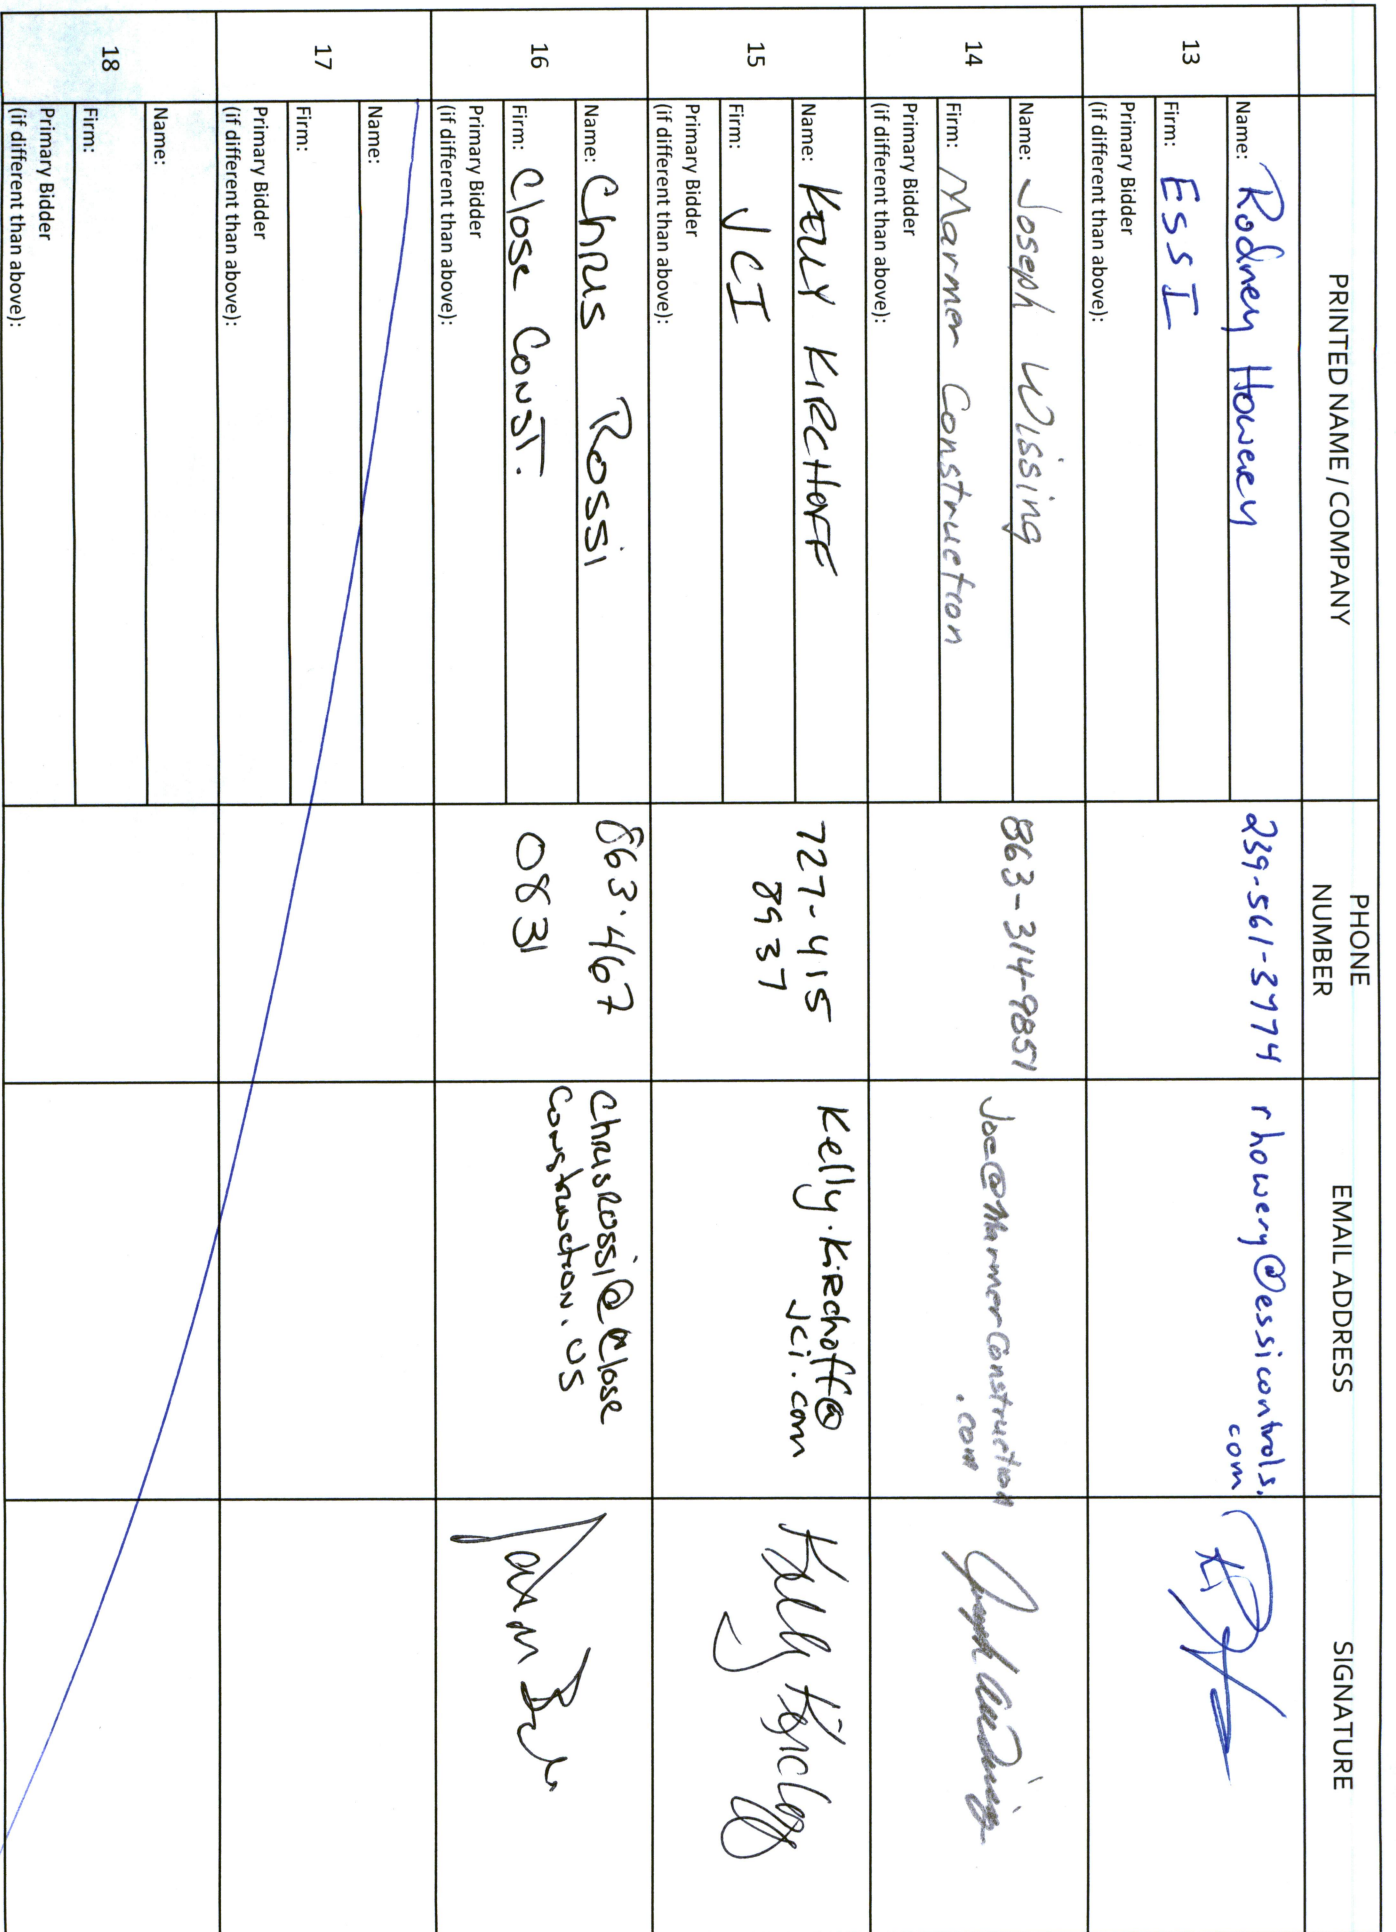 PRINTED NAME / COMPANY
PHONE
NUMBER
EMAIL ADDRESS
SIGNATURE
13
Name: Rodney Howery
Firm: ESSI
Primary Bidder
(if different than above):
239-561-3774
rhowery@essicontrols.
com
14
Name: Joseph Wissing
Firm: Marmer Construction
Primary Bidder
(if different than above):
863-314-9851
Joe@MarmerConstruction
.com
15
Name: KELLY KIRCHOFF
Firm: JCI
Primary Bidder
(if different than above):
727-415
8937
Kelly.Kirchoff@
jci.com
Kelly Kirchoff
16
Name: Chris Rossi
Firm: Close Const.
Primary Bidder
(if different than above):
863.467
0831
ChrisRossi@Close
Construction.us
17
Name:
Firm:
Primary Bidder
(if different than above):
18
Name:
Firm:
Primary Bidder
(if different than above):